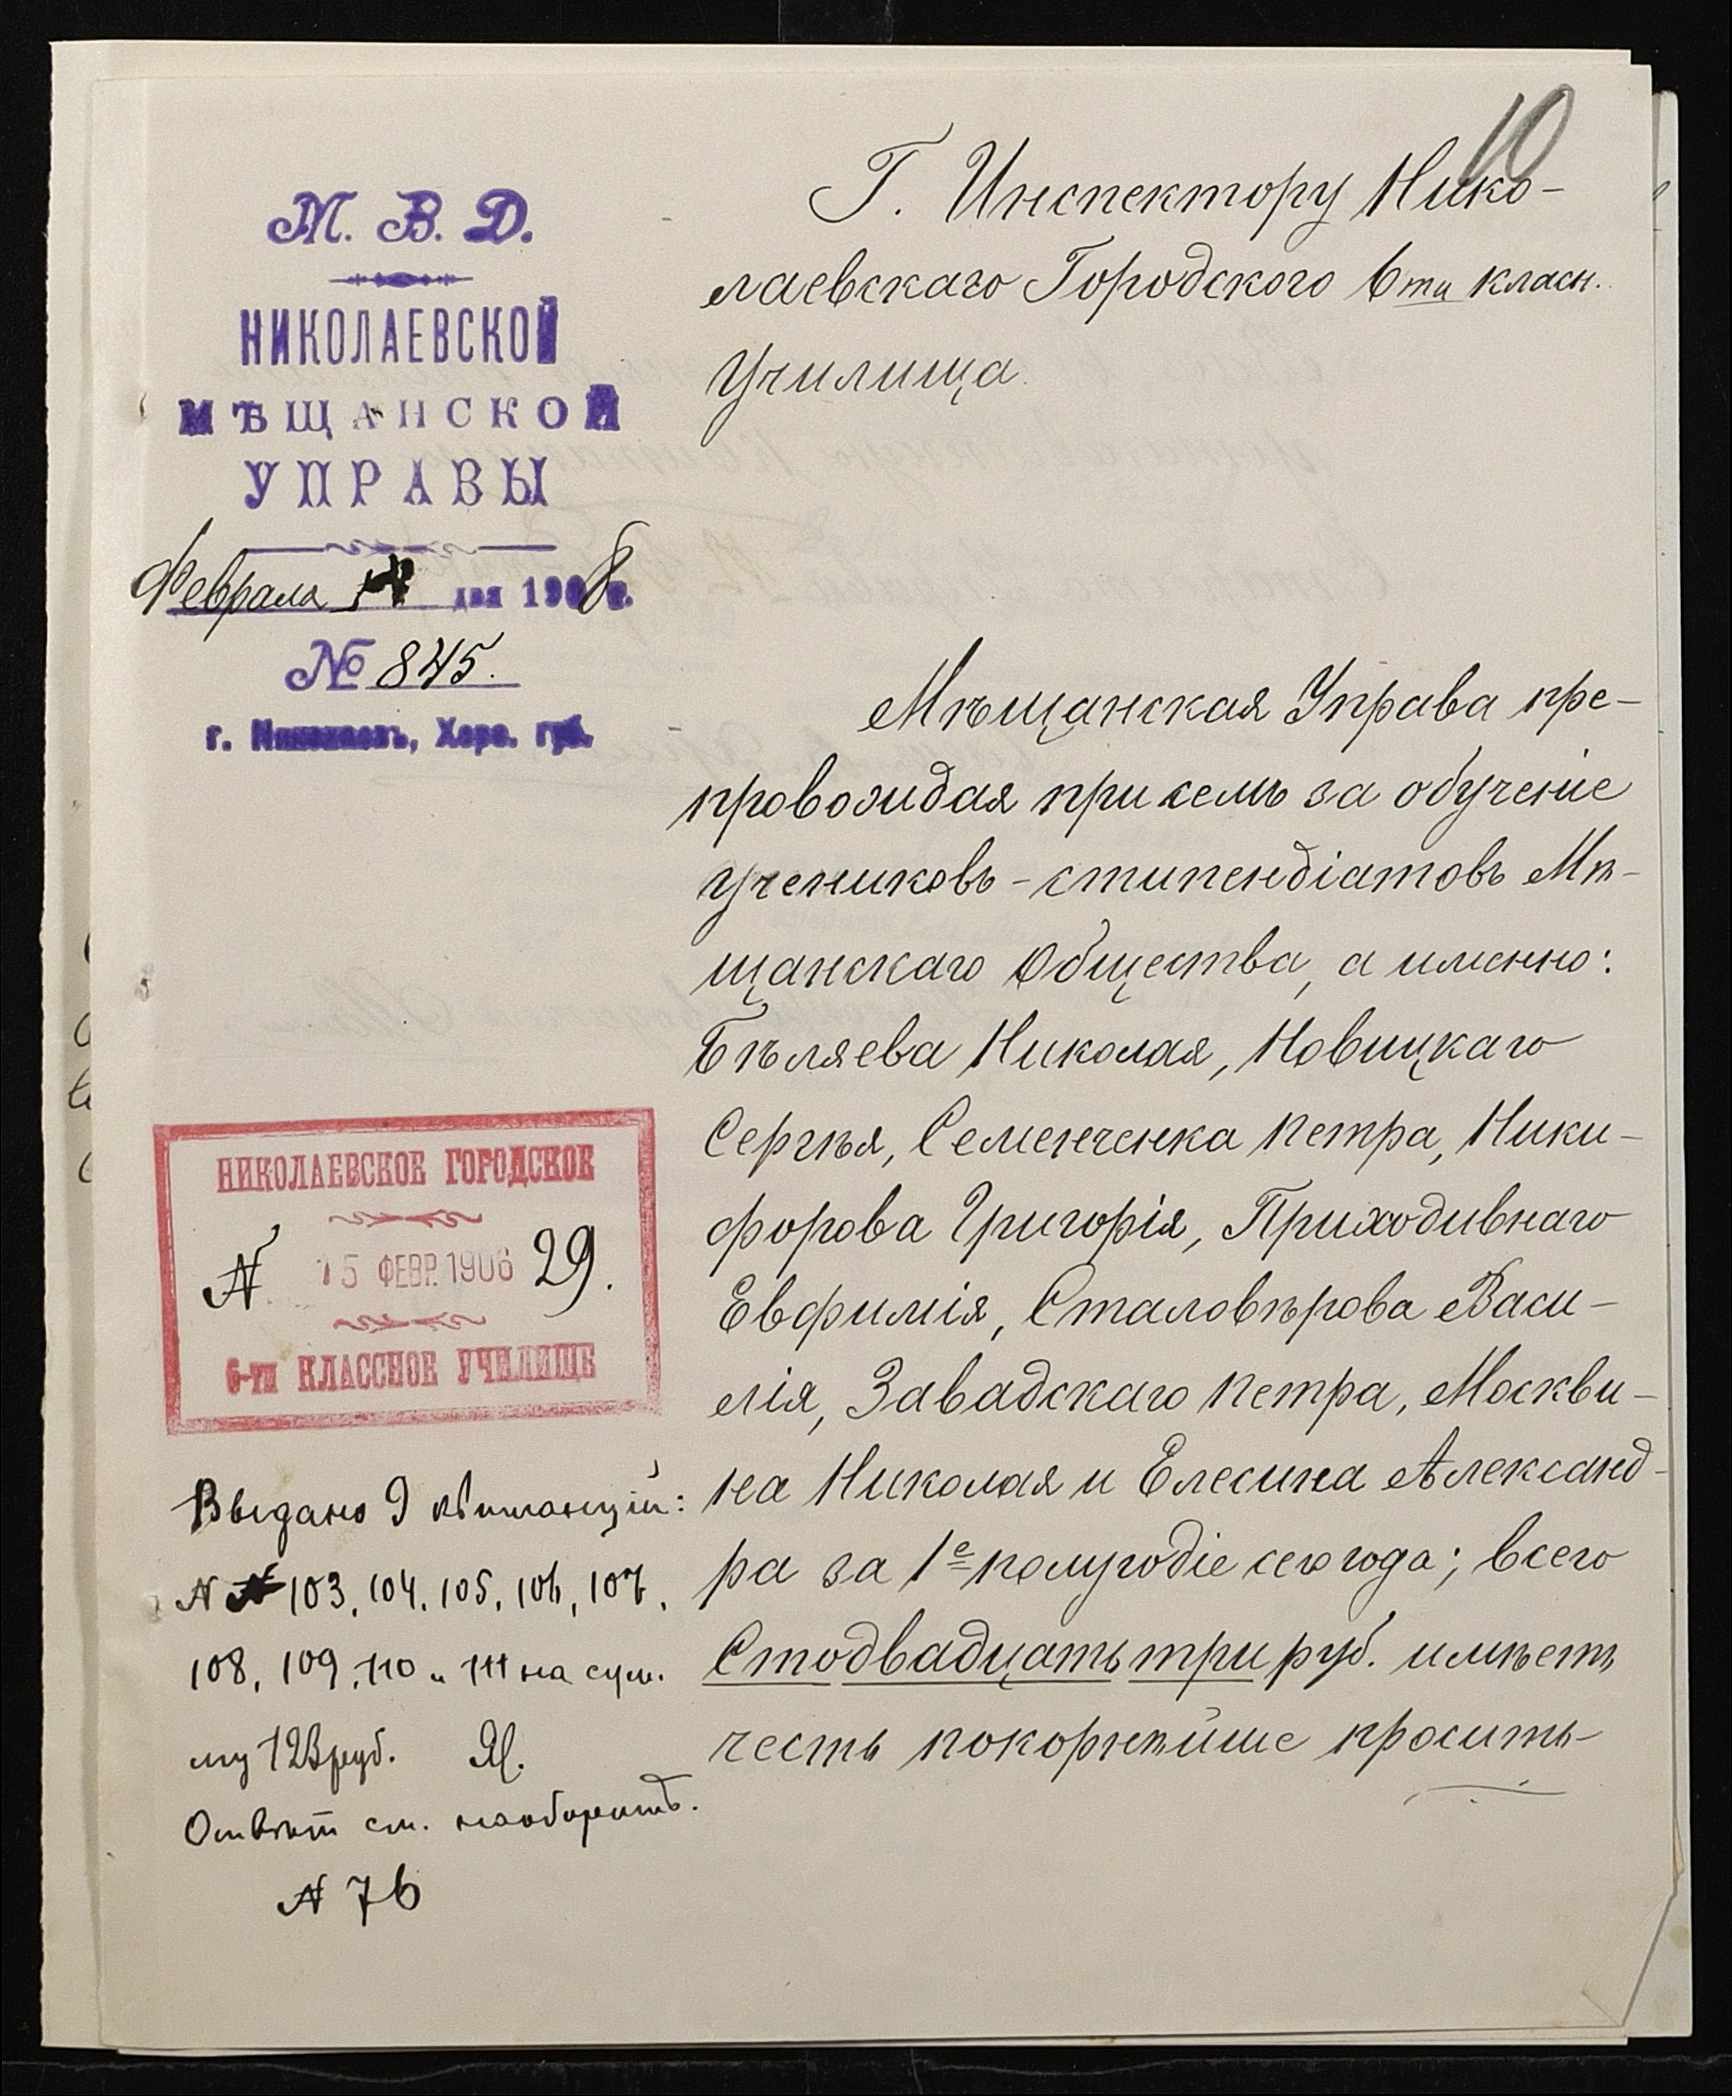 10
М. В. Д.
НИКОЛАЕВСКОЙ
МѢЩАНСКОЙ
УПРАВЫ
Февраля дня 190 г.
№ 845.
г. Николаевъ, Херс. губ.
Г. Инспектору Нико-
лаевскаго Городского 6ти класн.
Училища.
Мѣщанская Управа пре-
провождая при семъ за обученіе
учениковъ-стипендіатовъ Мѣ-
щанскаго Общества, а именно:
Бѣляева Николая, Новицкаго
Сергѣя, Семенченка Петра, Ники-
форова Григорія, Приходивнаго
Евфимія, Сталовѣрова Васи-
лія, Завадскаго Петра, Москви-
на Николая и Елесина Александ-
ра за 1е полугодіе сего года; всего
Стодвадцать три руб. имѣетъ
честь покорнѣйше просить-
НИКОЛАЕВСКОЕ ГОРОДСКОЕ
N 15 ФЕВР. 1906 29.
6-ти КЛАССНОЕ УЧИЛИЩЕ
Выдано 9 квитанцій:
N N 103, 104, 105, 106, 107,
108, 109, 110 и 111 на сум-
му 123 руб.
Отвѣт см. наоборотѣ.
N 76